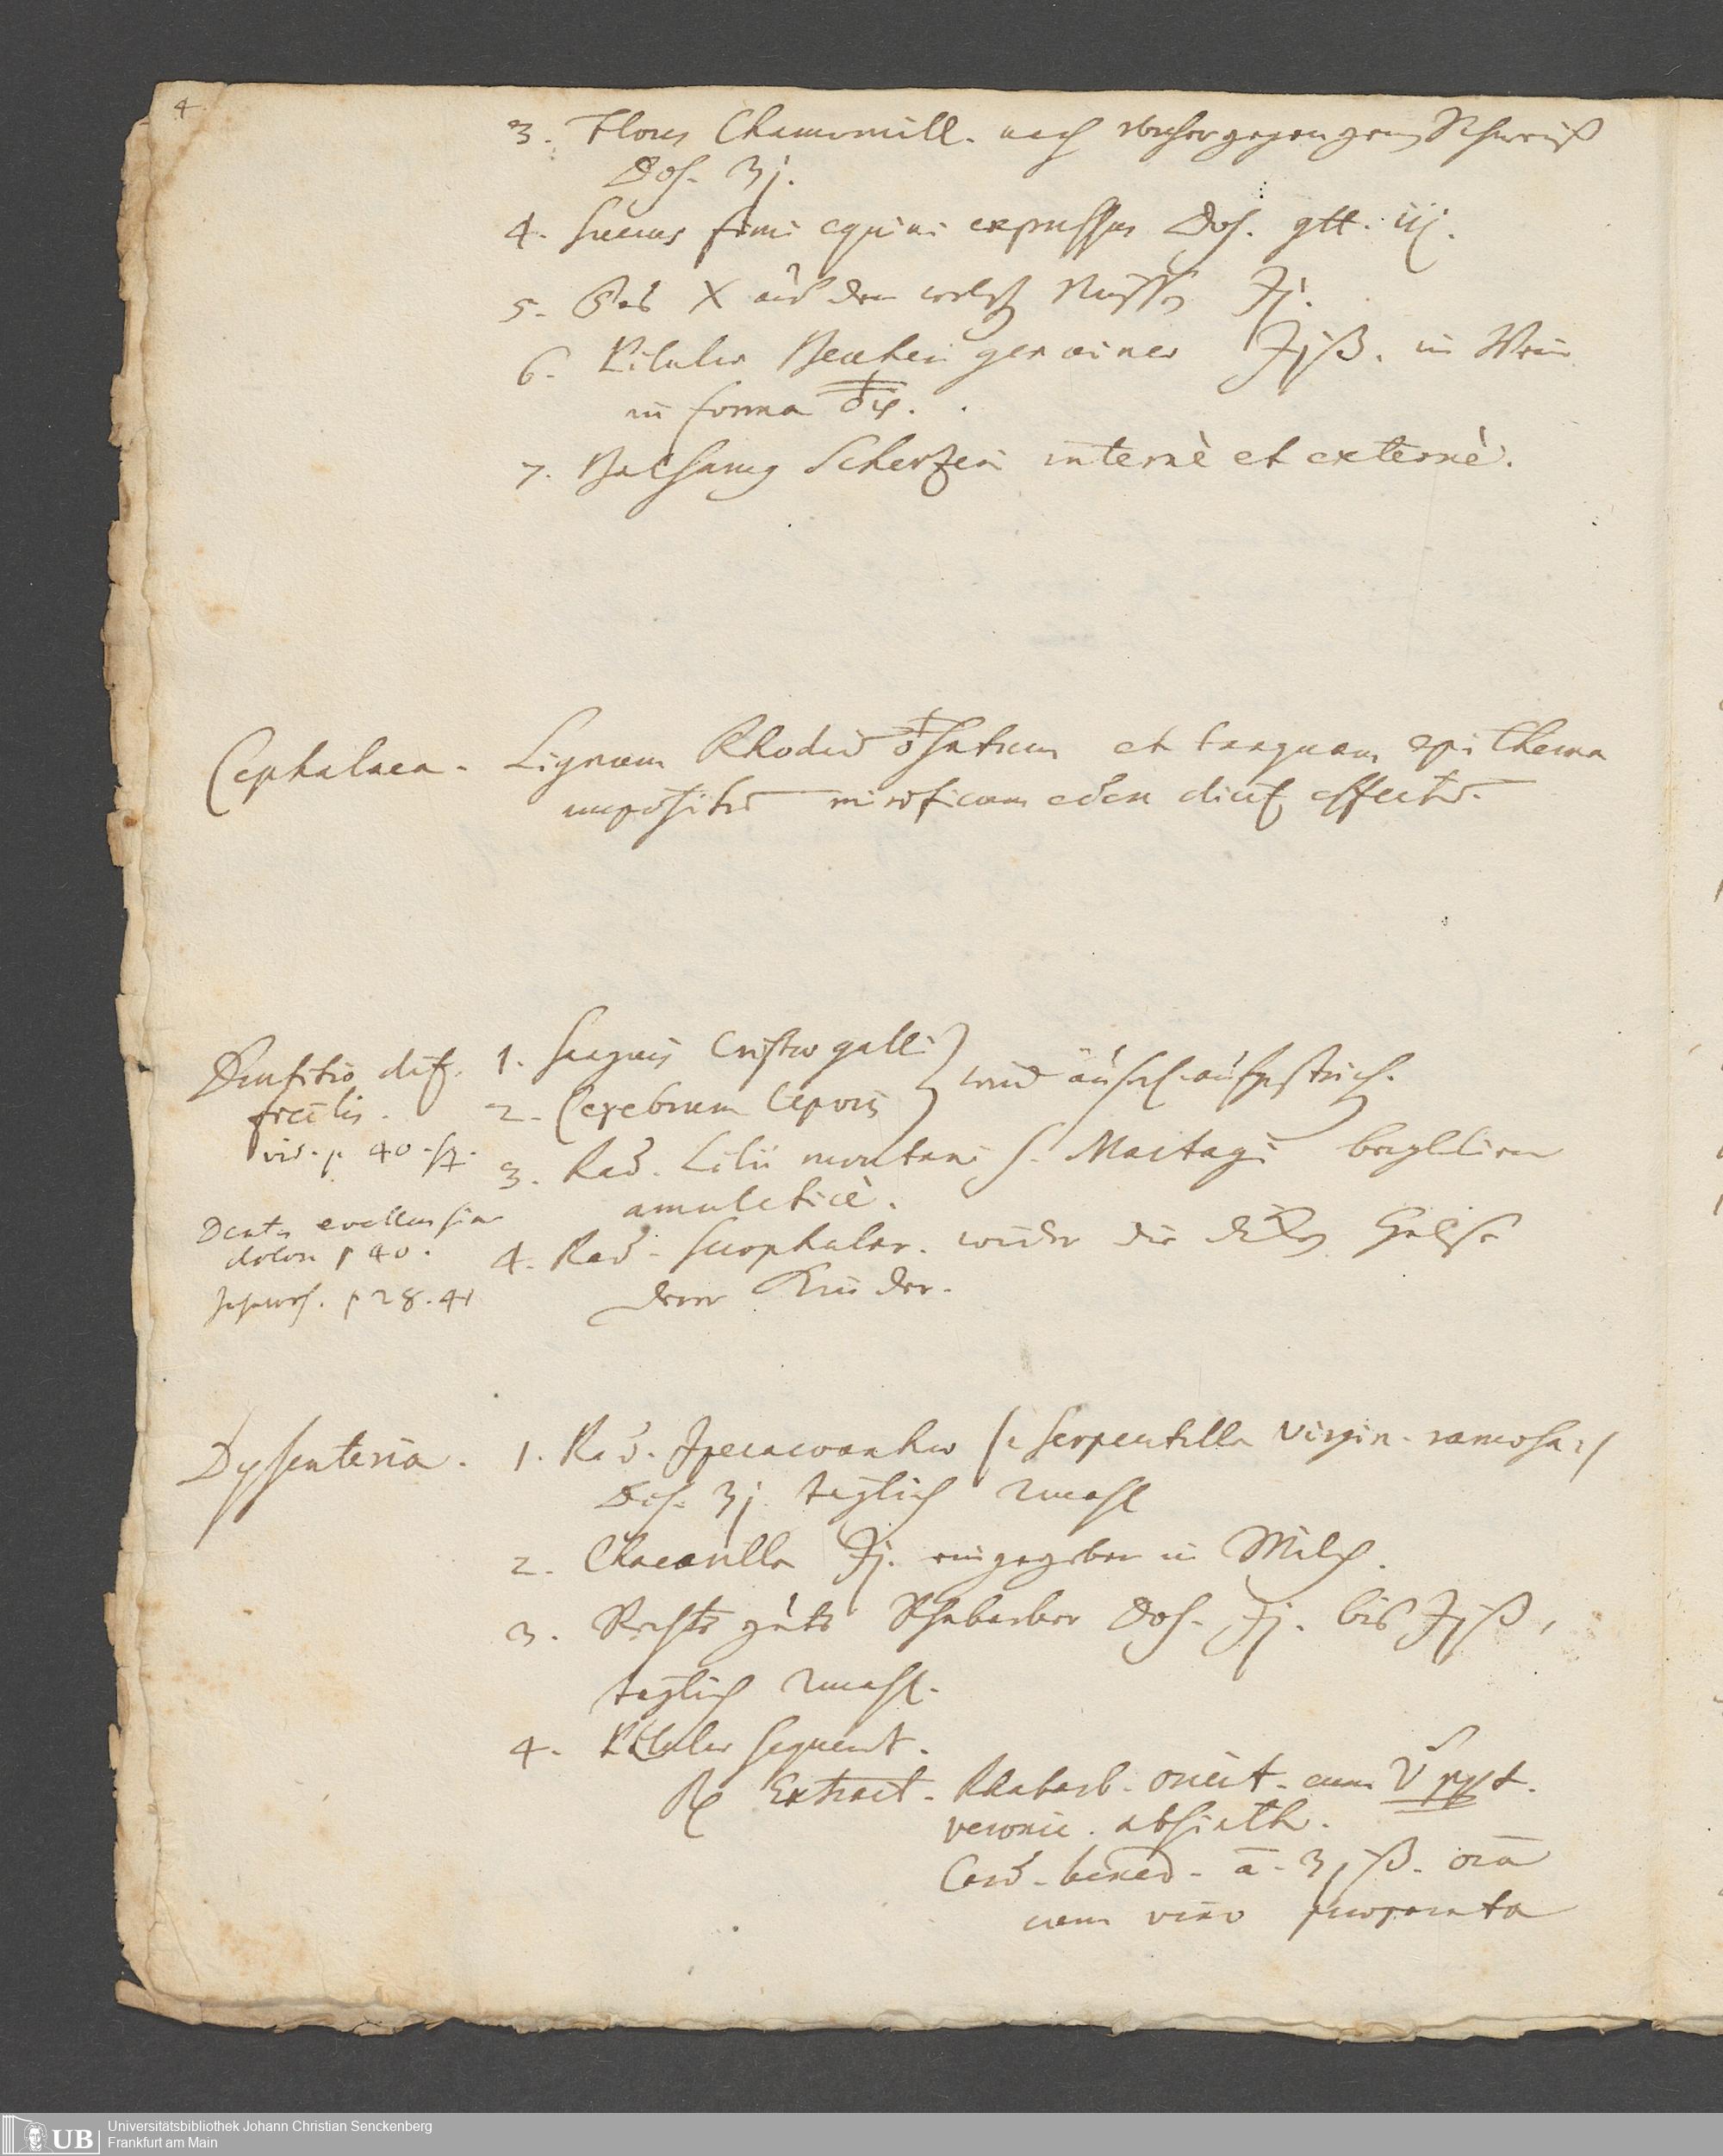 4
3. Flores Chamomill. nach vorhergegangenem Schweiß
Dos. ʒj.
4. Succus fimi equini expressus Dos. gtt. iij.
5. Das X aus den welschen Nüssen ℈j.
6. Pilulae Becheri genuinae ℈jß. in Wein
in forma
7. Balsamus Scherzeri internè et externè.
Cephalaea. Lignum Rhodium et tanquam epithema
impositum mirificum edere dicitur effectum.
Dentitio dif-
ficilis.
vid. p. 40. sq.
Dentes evellere sine
dolore p 40.
p 28. 41
1. Sanguis Cristae galli
2. Cerebrum Leporis } wird äuserl. aufgestrich.
3. Rad. Lilii montani s. Martagi
amuleticè.
4. Rad. Scrophular. wider die dicken Hälse
derer Kinder.
Dysenteria. 1. Rad. Ipecacoanhae (i. Serpentilla virgin. ramosa)
Dos. ʒj. täglich 2mahl
2. Chacarilla ℈j. eingegeben in Milch.
3. Recht gute Rhabarber Dos. ℈j. bis ℈jß,
täglich 2mahl.
4. Pilulae sequent.
℞ Extract. Rhabarb. orient. cum
veronic. absinth.
Card. bened. ā. ʒjß. omnia
cum vino praeparata
Universitätsbibliothek Johann Christian Senckenberg
Frankfurt am Main
UB